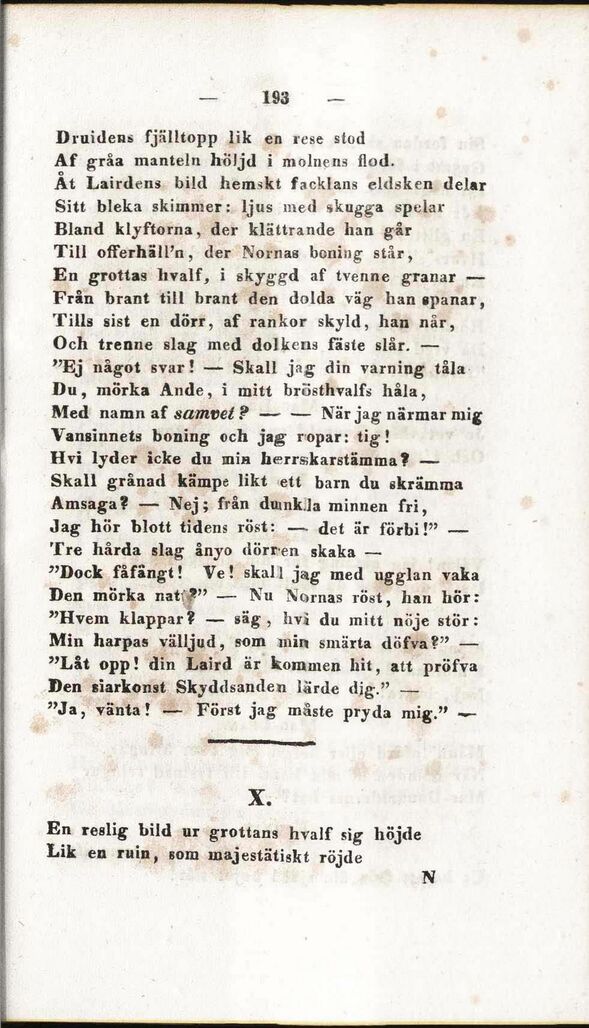 — 193 —
Druidens fjälltopp lik en rese stod
Af gråa manteln höljd i molnens flod.
Åt Lairdens bild hemskt facklans eldsken delar
Sitt bleka skimmer: ljus med skugga spelar
Bland klyftorna, der klättrande han går
Till offerhäll'n, der Nornas boning står,
En grottas hvalf, i skyggd af tvenne granar —
Från brant till brant den dolda väg han spanar,
Tills sist en dörr, af rankor skyld, han når,
Och trenne slag med dolkens fäste slår. —
”Ej något svar! — Skall jag din varning tåla
Du, mörka Ande, i mitt brösthvalfs håla,
Med namn af samvet? — — När jag närmar mig
Vansinnets boning och jag ropar: tig!
Hvi lyder icke du min herrskarstämma? —
Skall grånad kämpe likt ett barn du skrämma
Amsaga? — Nej; från dunkla minnen fri,
Jag hör blott tidens röst: — det är förbi!” —
Tre hårda slag ånyo dörren skaka —
”Dock fåfängt! Ve! skall jag med ugglan vaka
Den mörka natt?” — Nu Nornas röst, han hör:
”Hvem klappar? — säg, hvi du mitt nöje stör:
Min harpas välljud, som min smärta döfva?” —
”Låt opp! din Laird är kommen hit, att pröfva
Den siarkonst Skyddsanden lärde dig.” —
”Ja, vänta! — Först jag måste pryda mig.” —
X.
En reslig bild ur grottans hvalf sig höjde
Lik en ruin, som majestätiskt röjde
N